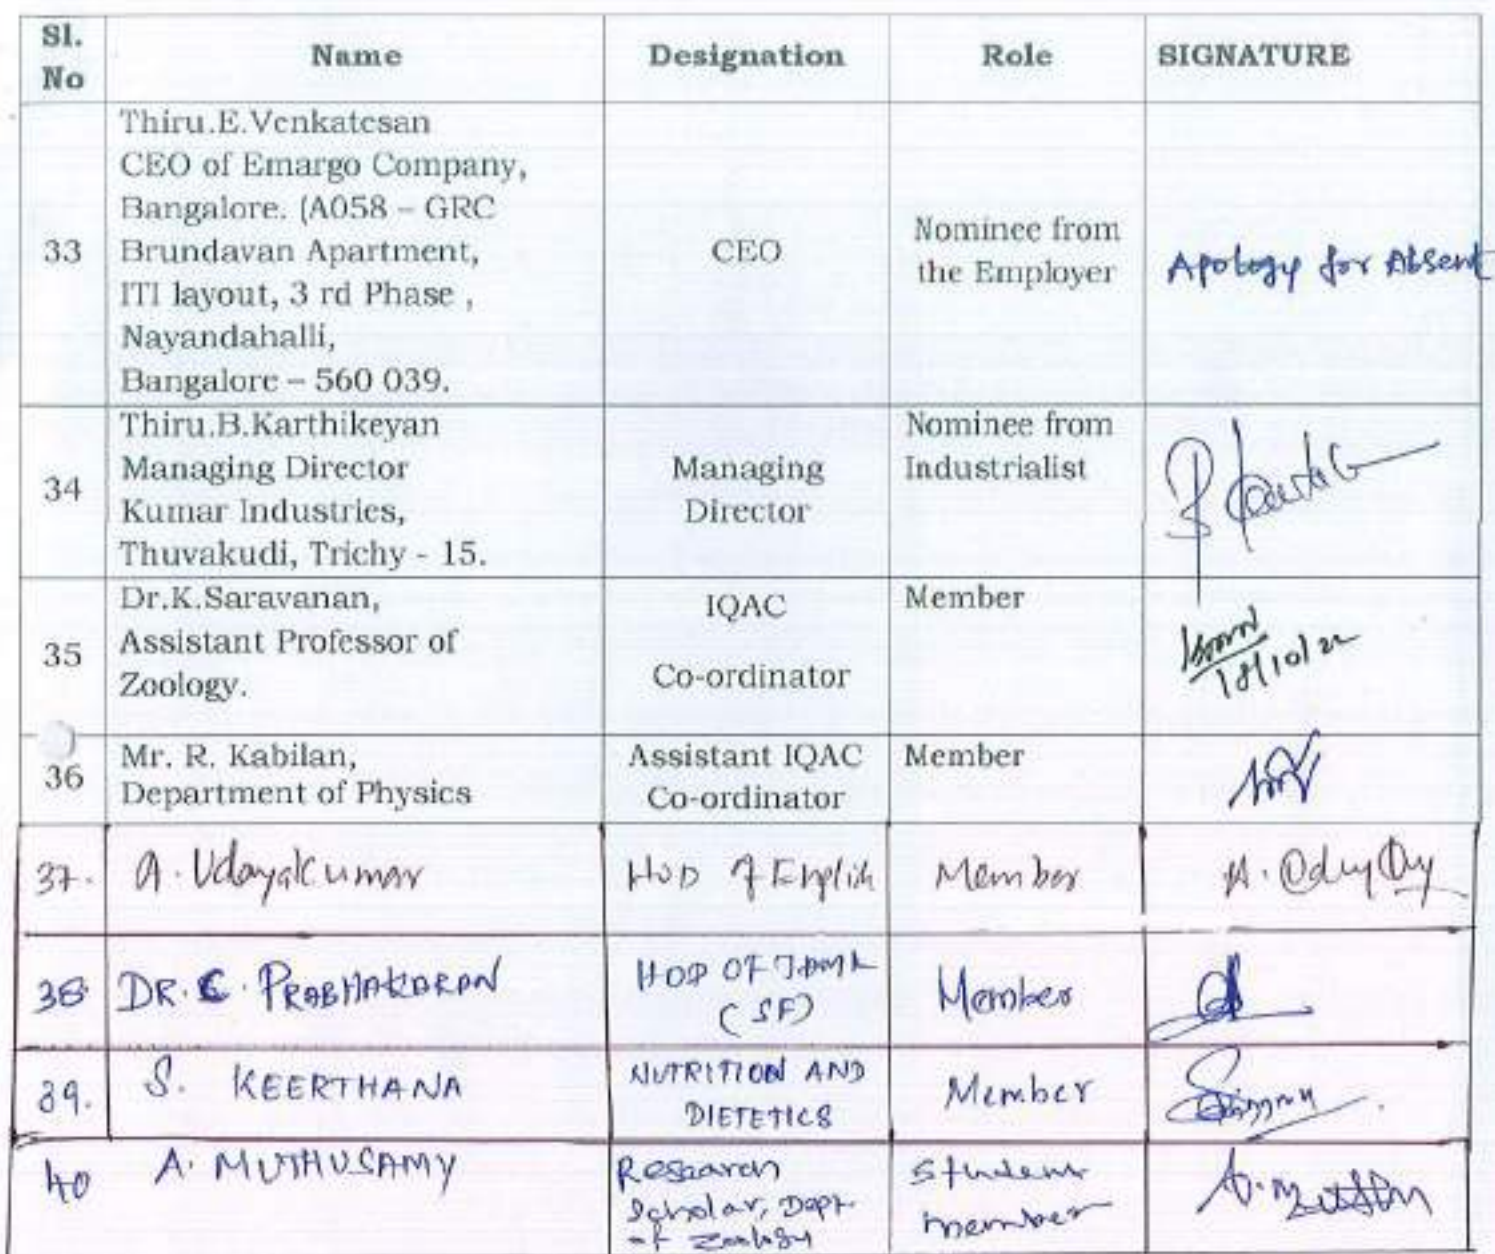 Sl. No Name Designation Role SIGNATURE
33
Thiru.E.Venkatesan
CEO of Emargo Company,
Bangalore. (A058 – GRC
Brundavan Apartment,
ITI layout, 3 rd Phase ,
Nayandahalli,
Bangalore – 560 039.
CEO
Nominee from
the Employer
Apology for Absent
34
Thiru.B.Karthikeyan
Managing Director
Kumar Industries,
Thuvakudi, Trichy - 15.
Managing
Director
Nominee from
Industrialist
35
Dr.K.Saravanan,
Assistant Professor of
Zoology.
IQAC
Co-ordinator
Member
18/10/22
36
Mr. R. Kabilan,
Department of Physics
Assistant IQAC
Co-ordinator
Member
37.
A. Udayakumar
HOD of English
Member
38
DR. C. PRABHAKARAN
HOD OF
(SF)
Member
39.
S. KEERTHANA
NUTRITION AND
DIETETICS
Member
40
A. MUTHUSAMY
Research
Scholar, Dept.
of Zoology
Student
member